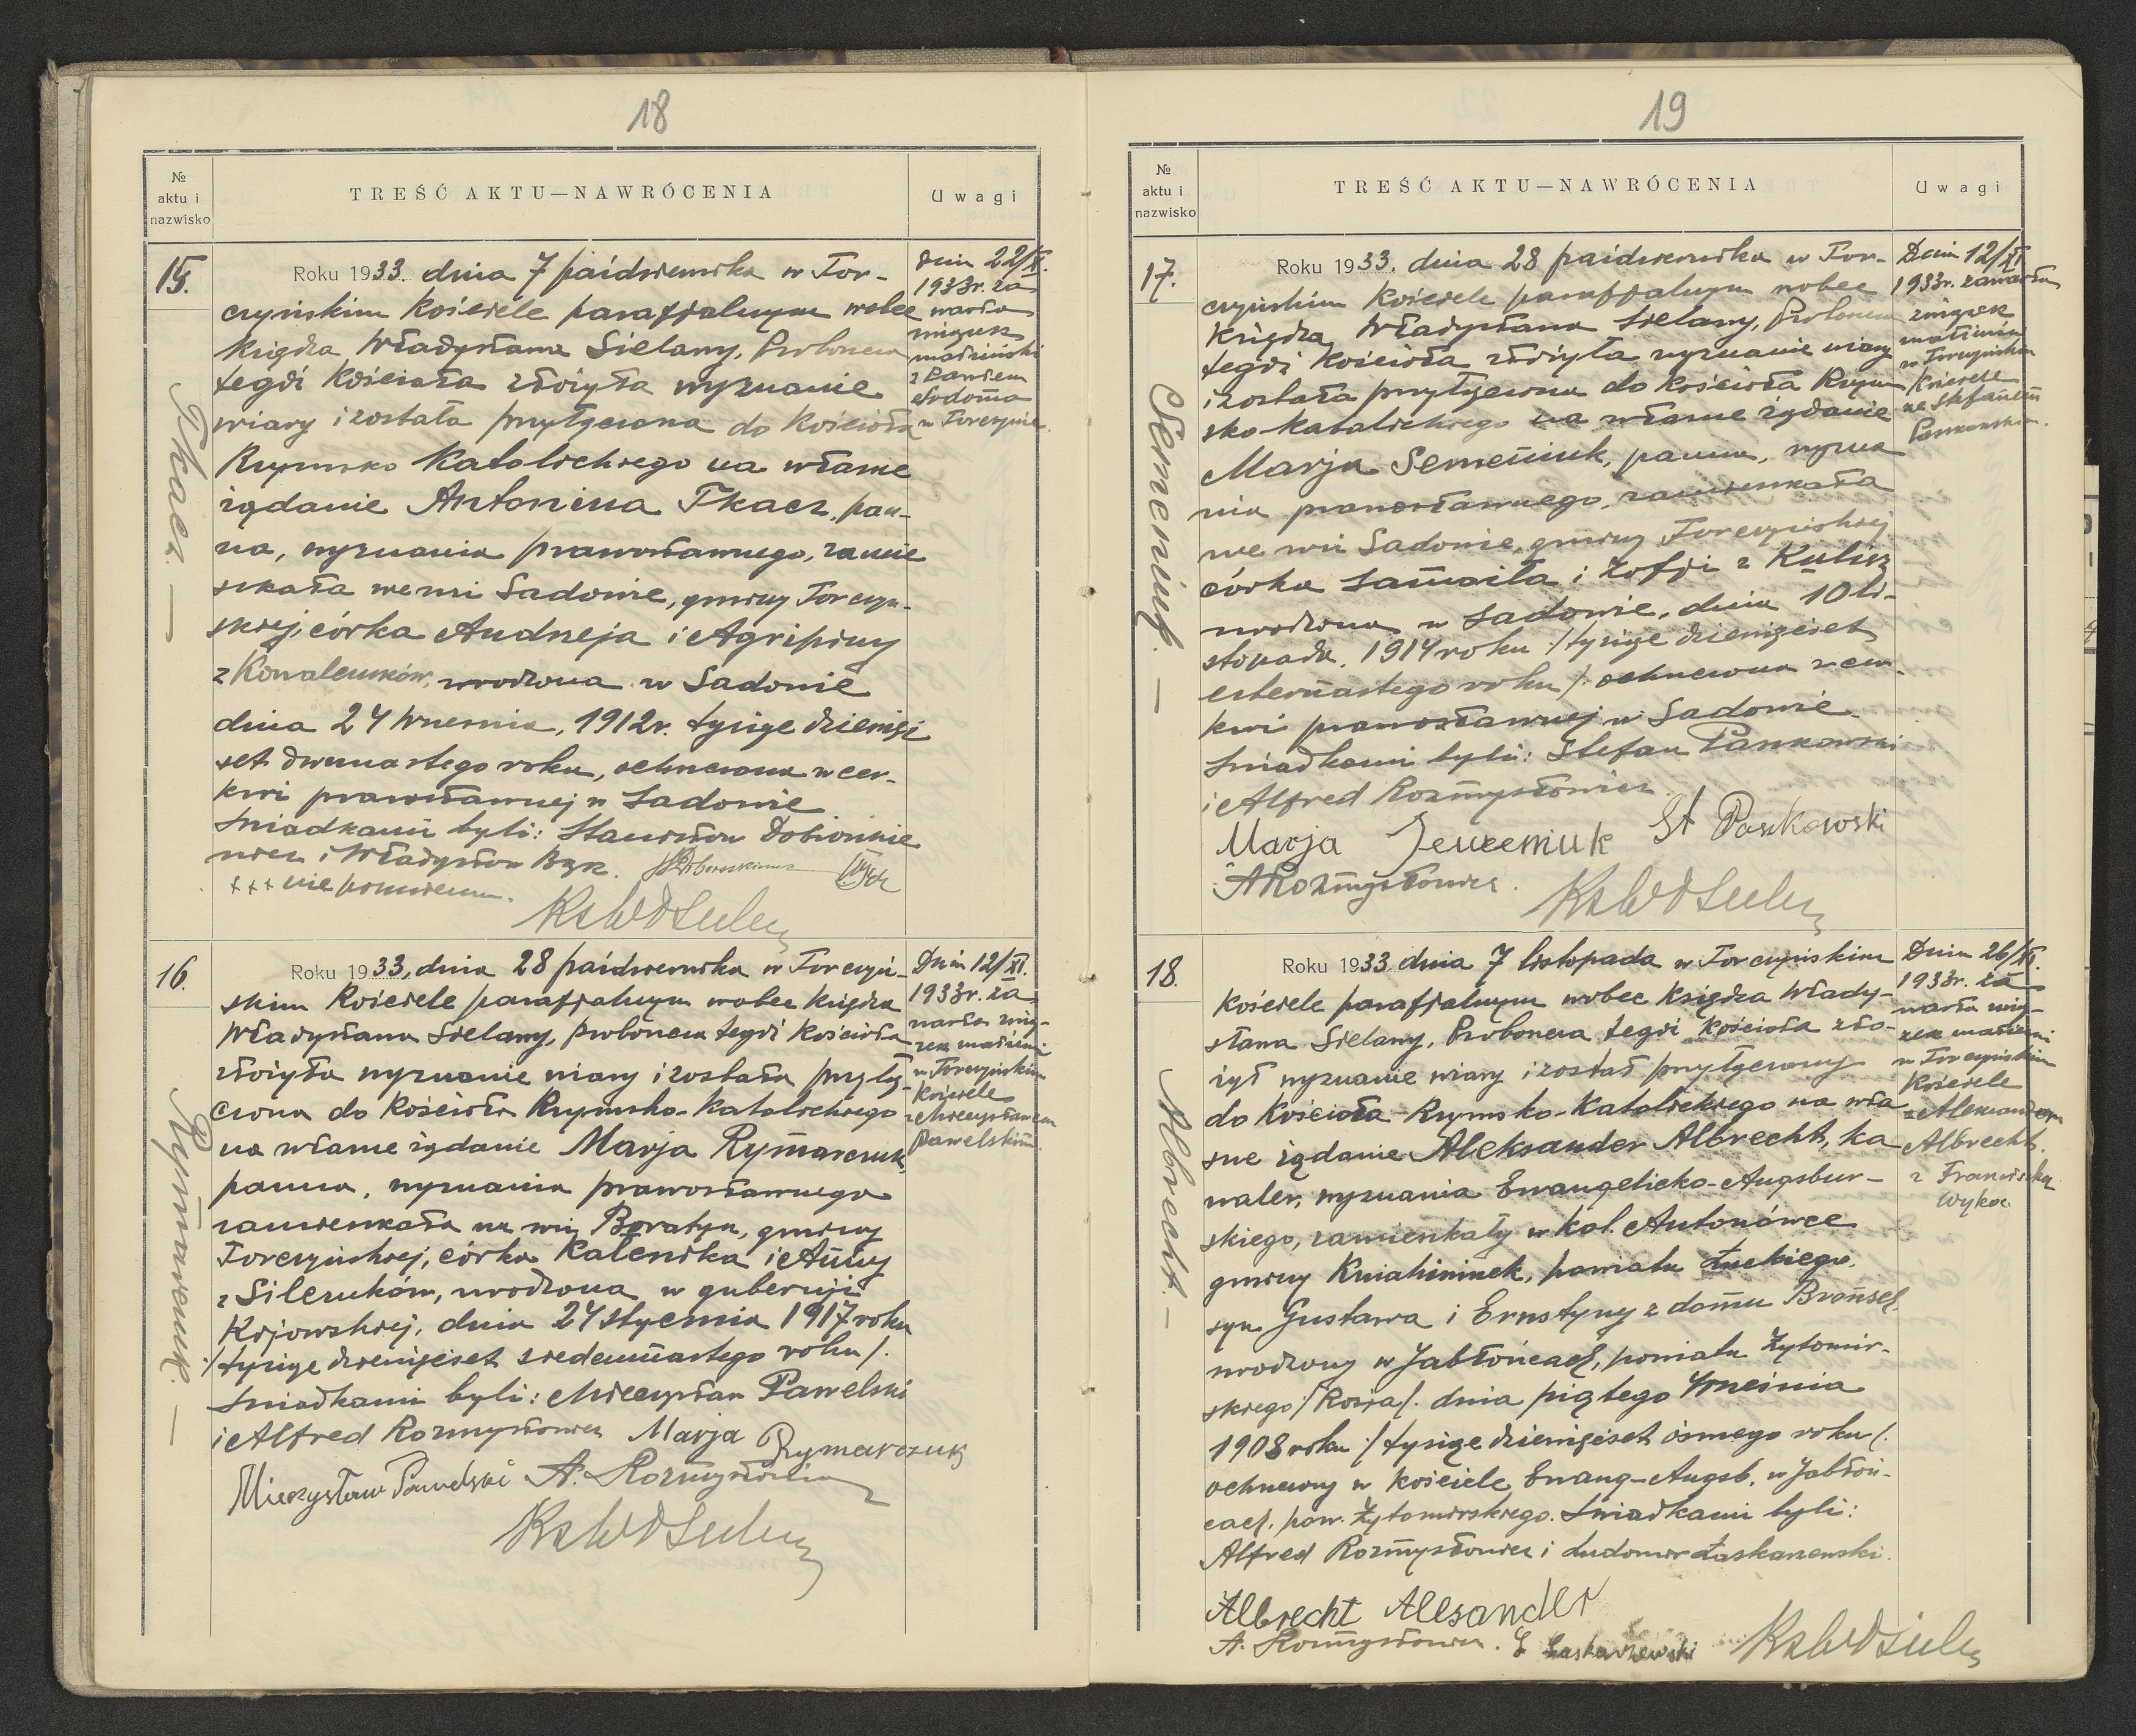 18
№
aktu i
nazwisko
TREŚĆ AKTU—NAWRÓCENIA
Uwagi
15.
Tkacz. —
Roku 1933. dnia 7 paidziernika w Tor-
czyńskim Kościele parafjalnym wobec
Księdza Władysława Sielawy, Proboszcza
tegoż Kościoła złożyła wyznanie
wiary i została przyłączona do Kościoła
Rzymsko Katolickiego na własne
żądanie Antonina Tkacz, pan-
na, wyznania prawosławnego, zamie
szkała we wsi Sadowie, gminy Torczyń-
skiej, córka Andrzeja i Agripiny
z Kowalczuków, urodzona w Sadowie
dnia 24 Września, 1912r. tysiąc dziewięć
set dwunastego roku, ochrzczona w cer-
kwi prawosławnej w Sadowie
Świadkami byli: Stanisław
i Władysław Bąk.
+++ nie piśmienna.
Dnia 22/X.
1933r. za
warła
związek
małżeński
z Pawłem
w Torczynie.
16.
Rymarczuk. —
Roku 1933, dnia 28 paidziernika w Torczyń-
skim Kościele parafjalnym wobec księdza
Władysława Sielawy, proboszcza tegoż Kościoła
złożyła wyznanie wiary i została przyłą-
czona do Kościoła Rzymsko-Katolickiego
na własne żądanie Marja Rymarczuk,
panna, wyznania prawosławnego
zamieszkała we wsi Boratyn, gminy
Torczyńskiej, córka Kalenika i Anny
z Silczuków, urodzona w gubernji
Kijowskiej, dnia 24 stycznia 1917 roku
:/tysiąc dziewięćset siedemnastego roku/.
Świadkami byli: Mieczysław Pawelski
i Alfred Rozmysłowicz Marja Rymarczuk
Mieczysław Pawelski A. Rozmysłowicz
Dnia 12/XI.
1933r. za
warła zwią-
zek małżeń
w Torczyńskim
Kościele
z Mieczysławem
Pawelskim.
19
№
aktu i
nazwisko
TREŚĆ AKTU—NAWRÓCENIA
Uwagi
17.
Semeniuk. —
Roku 1933. dnia 28 paidziernika w Tor-
czyńskim Kościele parafjalnym wobec
Księdza Władysława Sielawy, Proboszcza
tegoż Kościoła złożyła wyznanie wiary
i została przyłączona do Kościoła Rzym
sko-katolickiego na własne żądanie
Marja Semeniuk, panna, wyzna
nia prawosławnego, zamieszkała
we wsi Sadowie, gminy Torczyńskiej
córka Samoiła i Zofji z Kulisz
urodzona w Sadowie, dnia 10 li-
stopada, 1914 roku :/tysiąc dziewięćset
czternastego roku/. ochrzczona w cer-
kwi prawosławnej w Sadowie.
Świadkami byli: Stefan Paszkowski
i Alfred Rozmysłowicz.
Marja Semeniuk St Paszkowski
A Rozmysłowicz.
Dnia 12/XI.
1933r. zawarła
związek
małżeński
w Torczyńskim
Kościele
ze Stefanem
Paszkowskim.
18.
Albrecht. —
Roku 1933. dnia 7 listopada w Torczyńskim
Kościele parafjalnym wobec Księdza Włady-
sława Sielawy, Proboszcza tegoż Kościoła zło-
żył wyznanie wiary i został przyłączony
do Kościoła Rzymsko-Katolickiego na wła
sne żądanie Aleksander Albrecht, ka
waler, wyznania Ewangelicko-Augsbur-
skiego, zamieszkały w Kol. Antonówce
gminy Kniahininek, powiatu Łuckiego.
syn Gustawa i Ernstyny z domu
urodzony w Jabłońcach, powiatu Żytomir-
skiego /Rosja/. dnia piątego Września
1908 roku :/tysiąc dziewięćset ósmego roku/.
ochrzczony w Kościele Ewang-Augsb. w Jabłoń-
cach, pow. Żytomirskiego. Świadkami byli:
Alfred Rozmysłowicz i Ludomir Łaskarzewski.
Albrecht Alesander
A. Rozmysłowicz. L Łaskarzewski
Dnia 26/XI.
1933r. za
warła zwią-
zek małżeń
w Torczyńskim
Kościele
z Aleksandrem
Albrecht.
z Franciszką
Wyka.